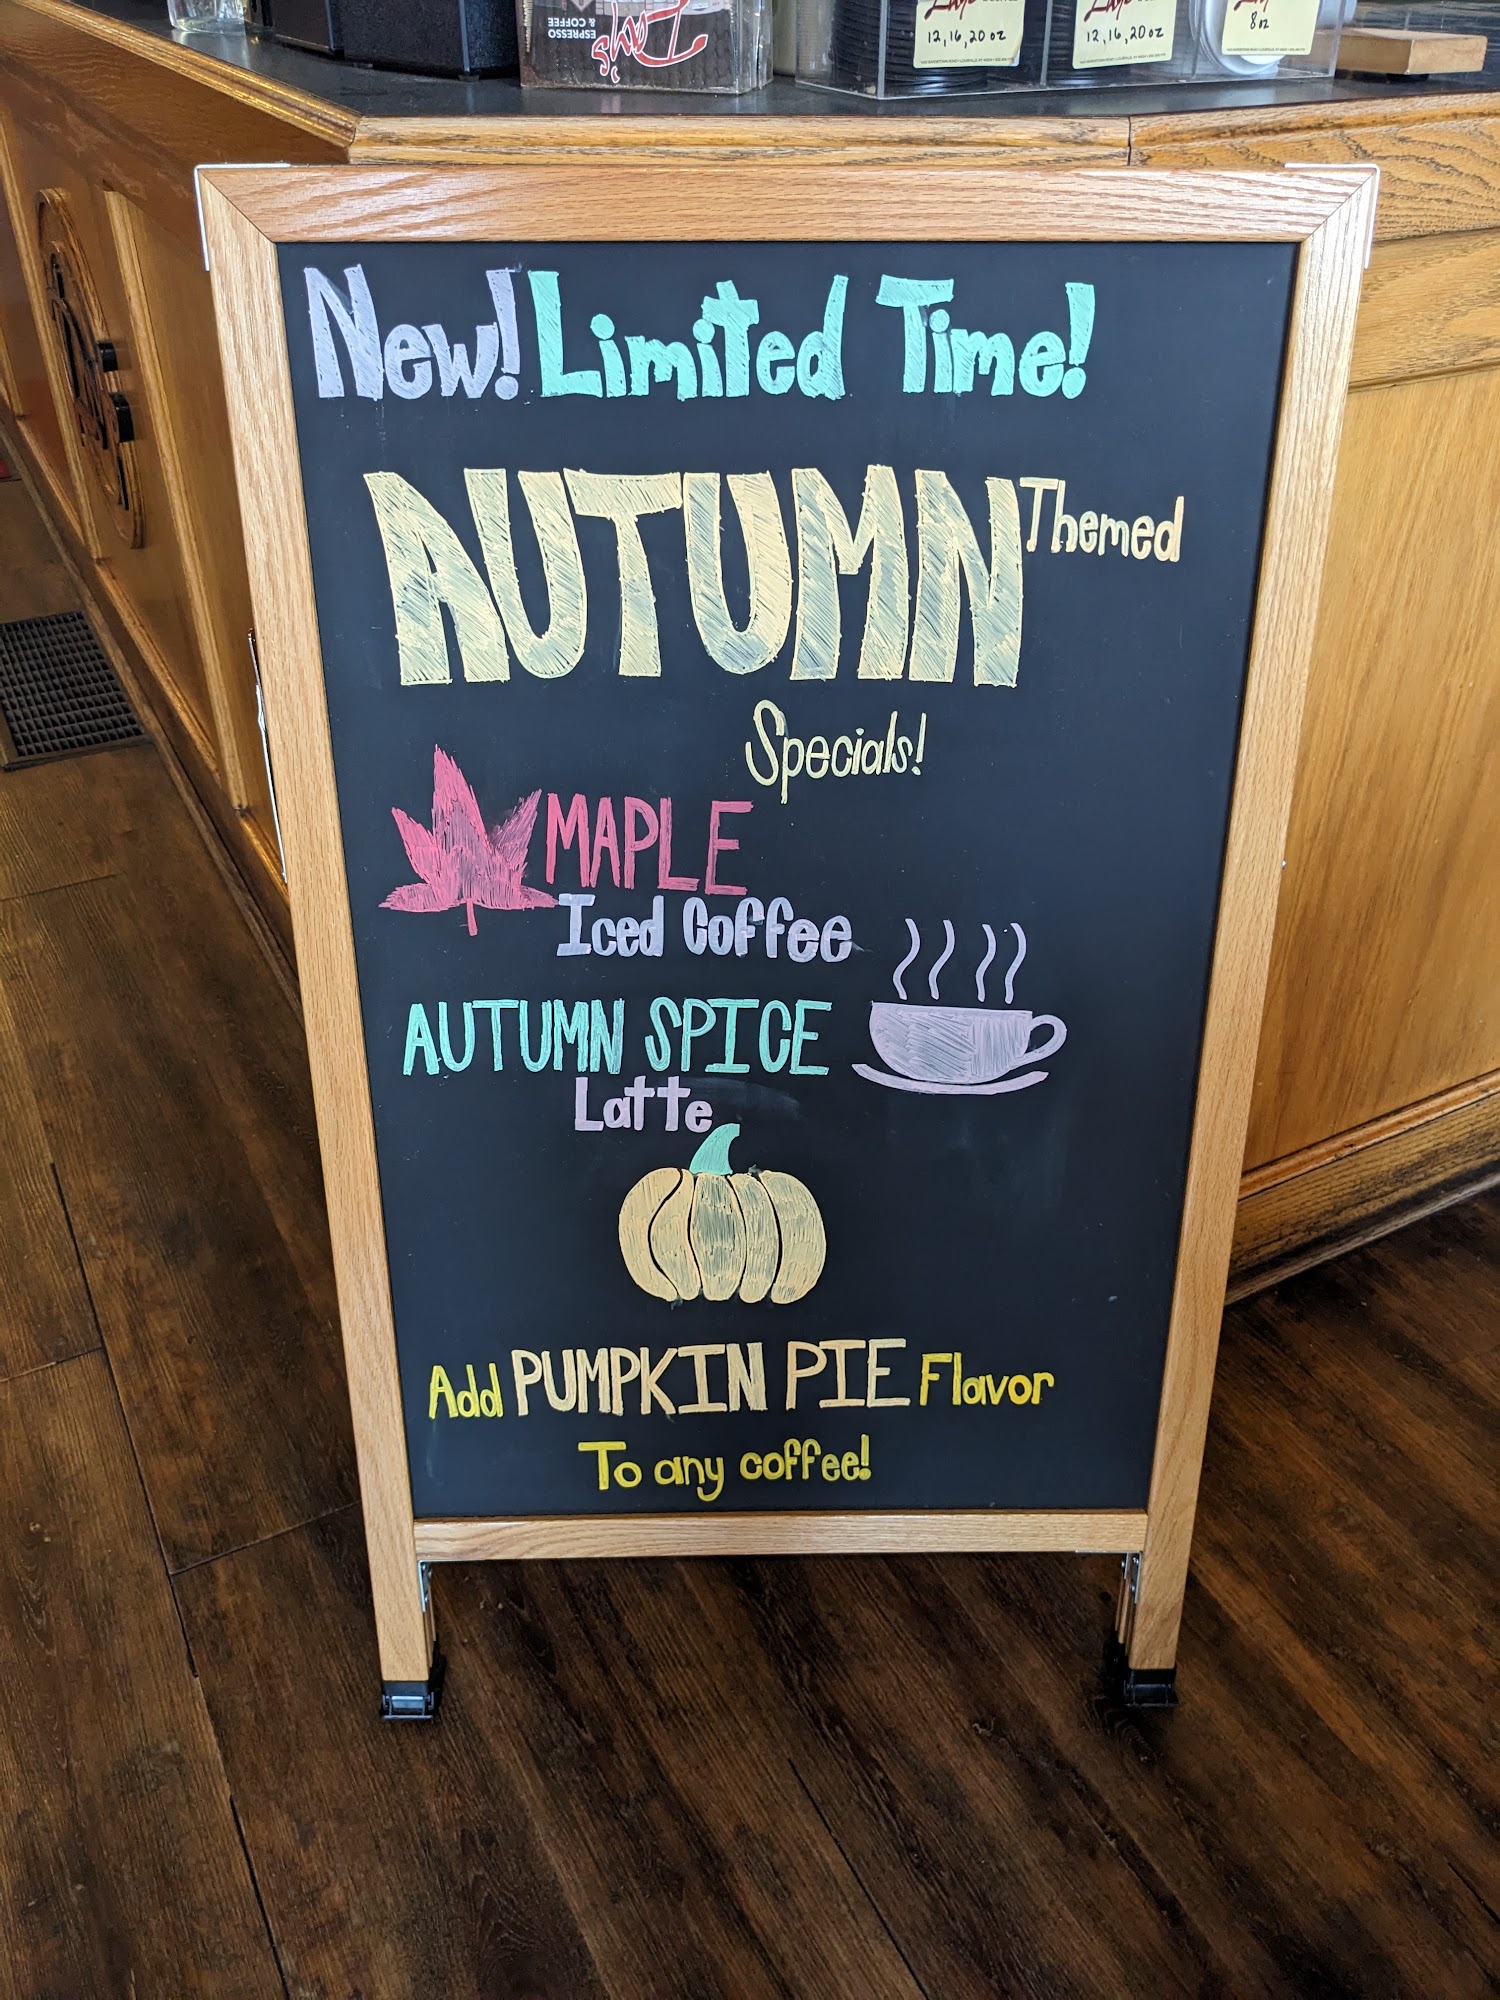 ESPRESSO
& COFFEE
12, 16, 20 oz
12, 16, 20 oz
8 oz
New! Limited Time!
AUTUMN Themed
Specials!
MAPLE
Iced Coffee
AUTUMN SPICE
Latte
Add PUMPKIN PIE Flavor
To any coffee!